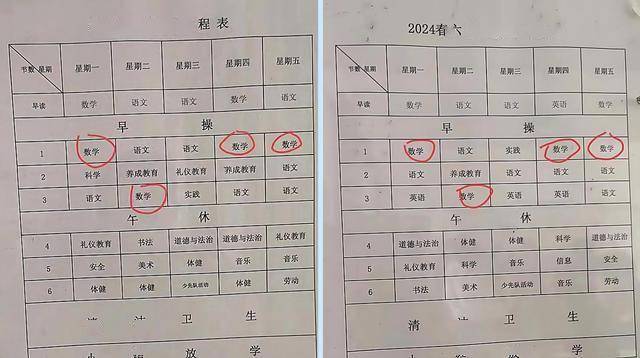 程表
节数 星期 星期一 星期二 星期三 星期四 星期五
早读 数学 语文 语文 数学 语文
早 操
1 数学 语文 语文 数学 数学
2 科学 养成教育 礼仪教育 养成教育 语文
3 语文 数学 实践 语文 语文
午 休
4 礼仪教育 书法 道德与法治 道德与法治 礼仪教育
5 安全 美术 体健 音乐 音乐
6 体健 体健 少先队活动 体健 劳动
卫 生
放 学
2024春 六
节数 星期 星期一 星期二 星期三 星期四 星期五
早读 数学 语文 语文 英语 数学
早 操
1 数学 语文 实践 数学 数学
2 语文 养成教育 语文 语文 语文
3 英语 数学 英语 英语 语文
午 休
4 道德与法治 体健 体健 科学 道德与法治
5 礼仪教育 科学 音乐 信息 安全
6 书法 美术 少先队活动 音乐 劳动
清 洁 卫 生
学